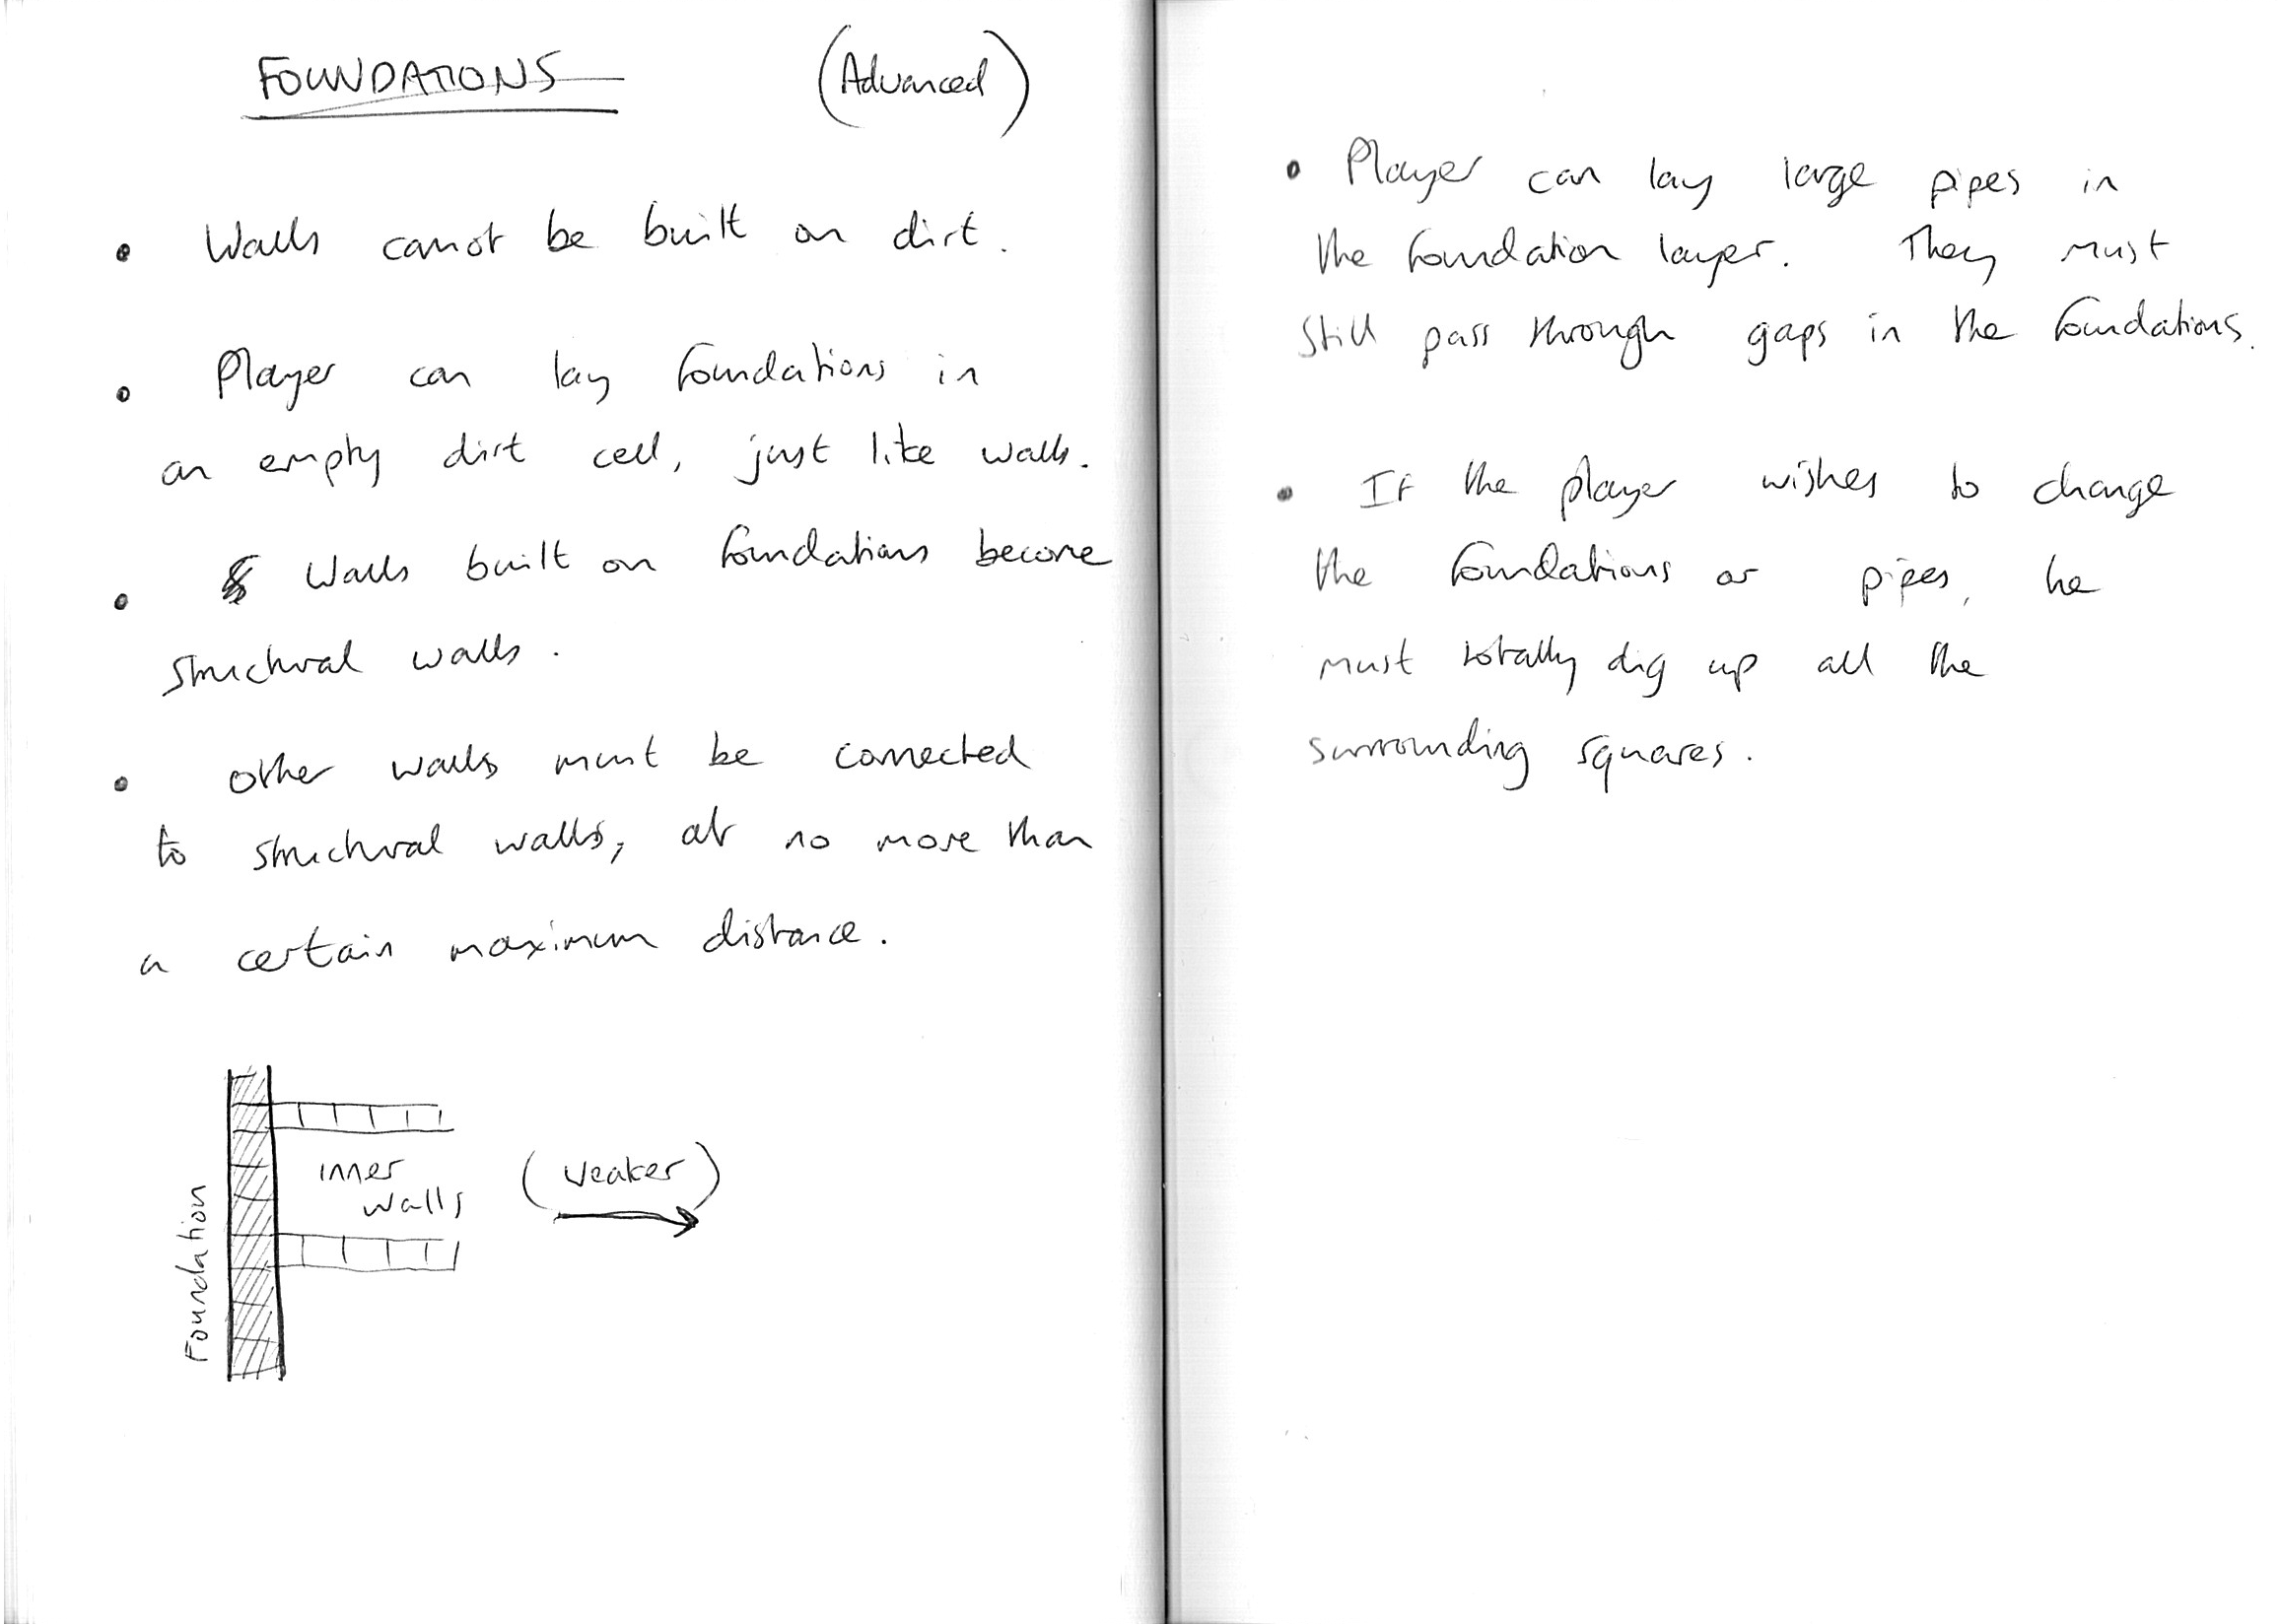 FOUNDATIONS (Advanced)
• Walls cannot be built on dirt.
• Player can lay foundations in
an empty dirt cell, just like walls.
• Walls built on foundations become
structural walls.
• Other walls must be connected
to structural walls, at no more than
a certain maximum distance.
Foundation
inner
walls
(weaker)
• Player can lay large pipes in
the foundation layer. They must
still pass through gaps in the foundations.
• If the player wishes to change
the foundations or pipes, he
must totally dig up all the
surrounding squares.